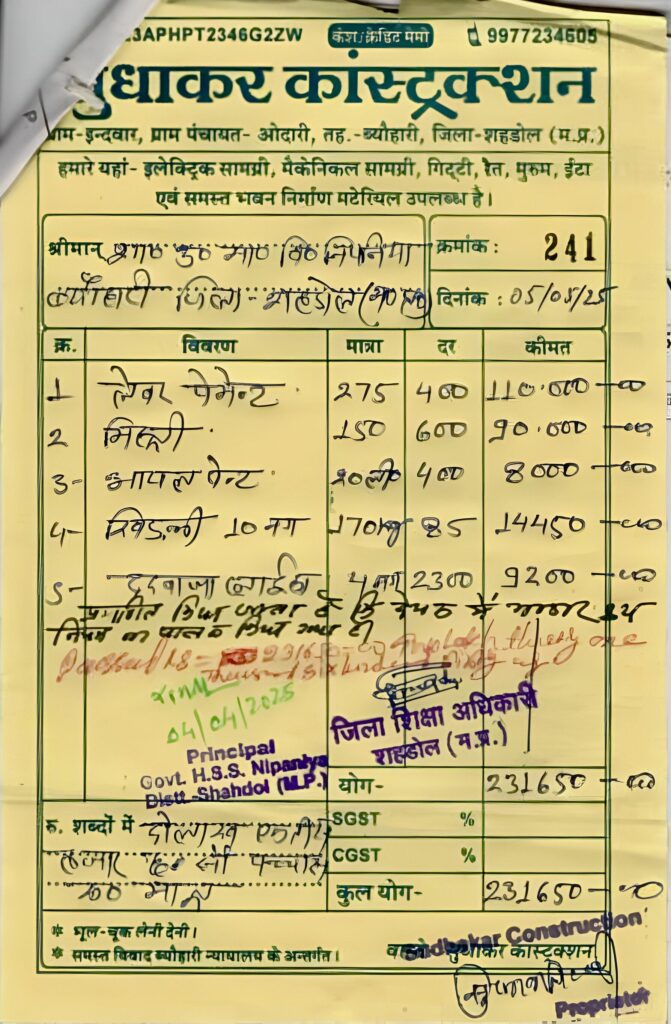 23APHPT2346G2ZW कैश/क्रेडिट मेमो 9977234605
सुधाकर कांस्ट्रक्शन
ग्राम-इन्दवार, ग्राम पंचायत- ओदारी, तह.-ब्यौहारी, जिला-शहडोल (म.प्र.)
हमारे यहां- इलेक्ट्रिक सामग्री, मैकेनिकल सामग्री, गिट्टी, रेत, मुरुम, ईटा
एवं समस्त भवन निर्माण मटेरियल उपलब्ध है।
श्रीमान् शा० उ० मा० वि० निपनिया क्रमांक : 241
ब्यौहारी जिला- शहडोल (म०प्र०) दिनांक : 05/05/25
क्र. विवरण मात्रा दर कीमत
1 लेवर पेमेन्ट 275 400 110.000—00
2 मिस्त्री 150 600 90.000—00
3- आयल पेन्ट 20ली० 400 8000—00
4- खिडकी 10 नग 170kg 85 14450—00
5- दरवाजा 4 नग 2300 9200—00
प्रमाणित किया जाता है कि में भण्डार क्रय
नियम का पालन किया गया है।
Passed RS = 231650
04/04/2025
Principal
Govt. H.S.S. Nipaniya
Distt.-Shahdol (M.P.)
जिला शिक्षा अधिकारी
शहडोल (म.प्र.)
योग- 231650—00
रु. शब्दों में दो लाख एकतीस SGST %
हजार छः सौ पच्चास CGST %
रू० मात्र कुल योग- 231650—00
* भूल-चूक लेनी देनी।
* समस्त विवाद ब्यौहारी न्यायालय के अन्तर्गत।
वास्ते सुधाकर कांस्ट्रक्शन
Sudhakar Construction
Proprietor